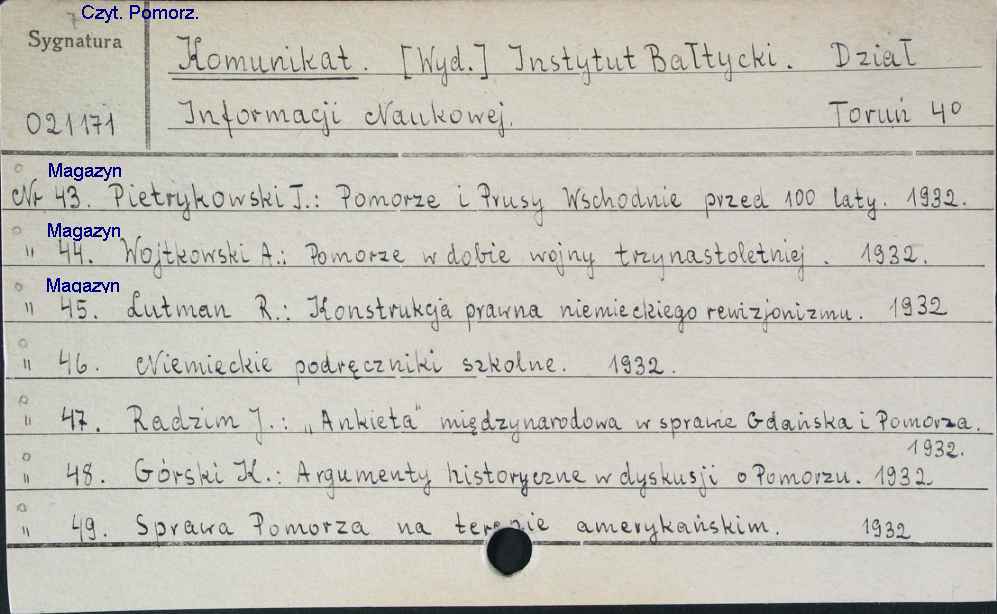 Czyt. Pomorz.
Sygnatura
021171
Komunikat. [Wyd.] Instytut Bałtycki. Dział
Informacji Naukowej. Toruń 4º
Magazyn
Nr 43. Pietrykowski T.: Pomorze i Prusy Wschodnie przed 100 laty. 1932.
Magazyn
" 44. Wojtkowski A.: Pomorze w dobie wojny trzynastoletniej. 1932.
Magazyn
" 45. Lutman R.: Konstrukcja prawna niemieckiego rewizjonizmu. 1932
" 46. Niemieckie podręczniki szkolne. 1932.
" 47. Radzim J.: „Ankieta" międzynarodowa w sprawie Gdańska i Pomorza.
1932.
" 48. Górski K.: Argumenty historyczne w dyskusji o Pomorzu. 1932
" 49. Sprawa Pomorza na terenie amerykańskim. 1932